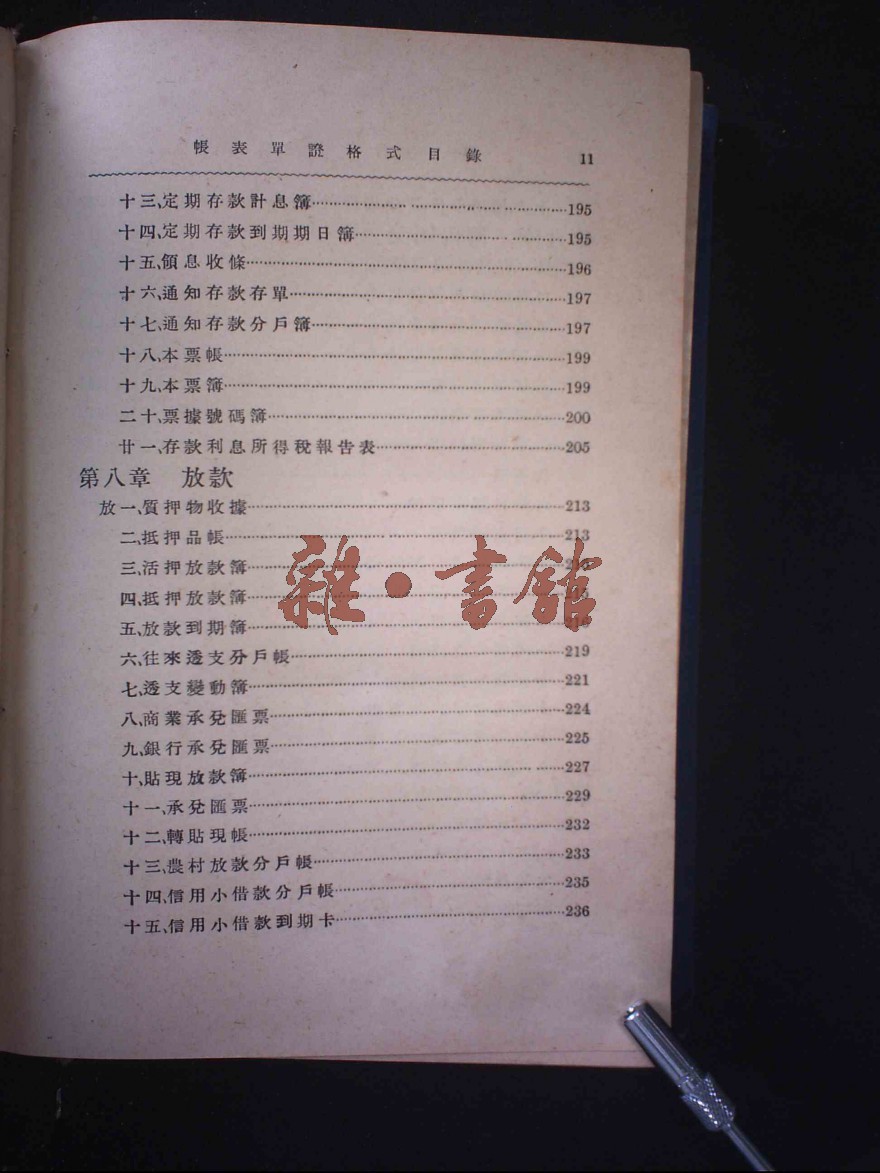 帳表單證格式目錄 11
十三、定期存款計息簿……195
十四、定期存款到期期日簿……195
十五、領息收條……196
十六、通知存款存單……197
十七、通知存款分戶簿……197
十八、本票帳……199
十九、本票簿……199
二十、票據號碼簿……200
廿一、存款利息所得稅報告表……205
第八章 放款
放一、質押物收據……213
二、抵押品帳……213
三、活押放款簿……
四、抵押放款簿……
五、放款到期簿……
六、往來透支分戶帳……219
七、透支變動簿……221
八、商業承兌匯票……224
九、銀行承兌匯票……225
十、貼現放款簿……227
十一、承兌匯票……229
十二、轉貼現帳……232
十三、農村放款分戶帳……233
十四、信用小借款分戶帳……235
十五、信用小借款到期卡……236
雜·書館